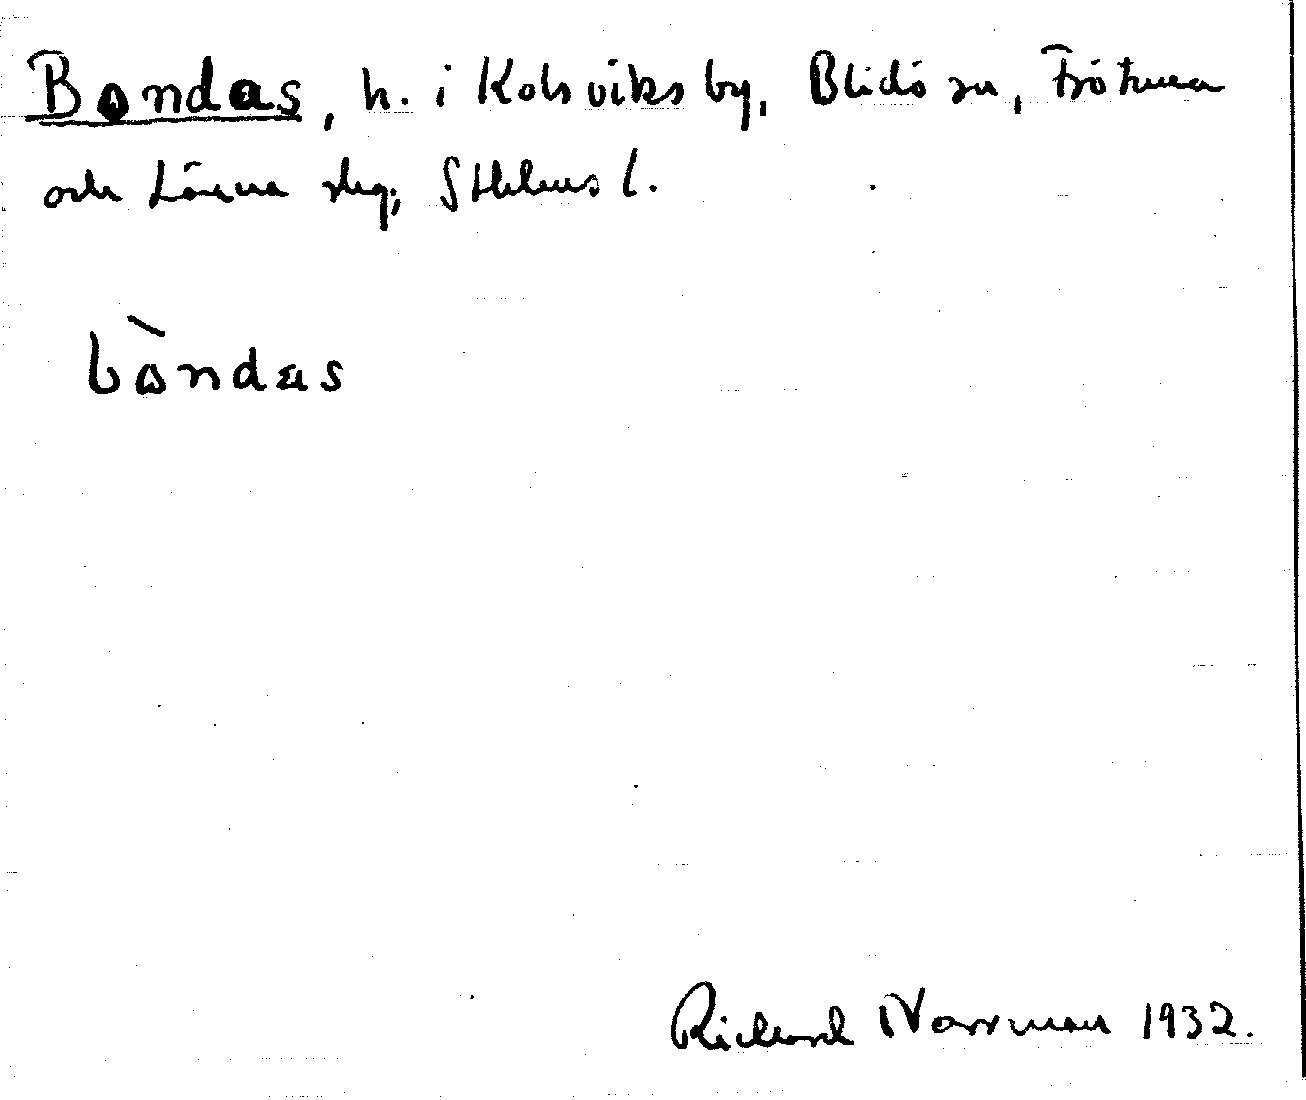 Bondas, h. i Kolsviks by, Blidö sn, Frötuna
och Länna skg, Sthlms l.
bòndas
Richard Norrman 1932.